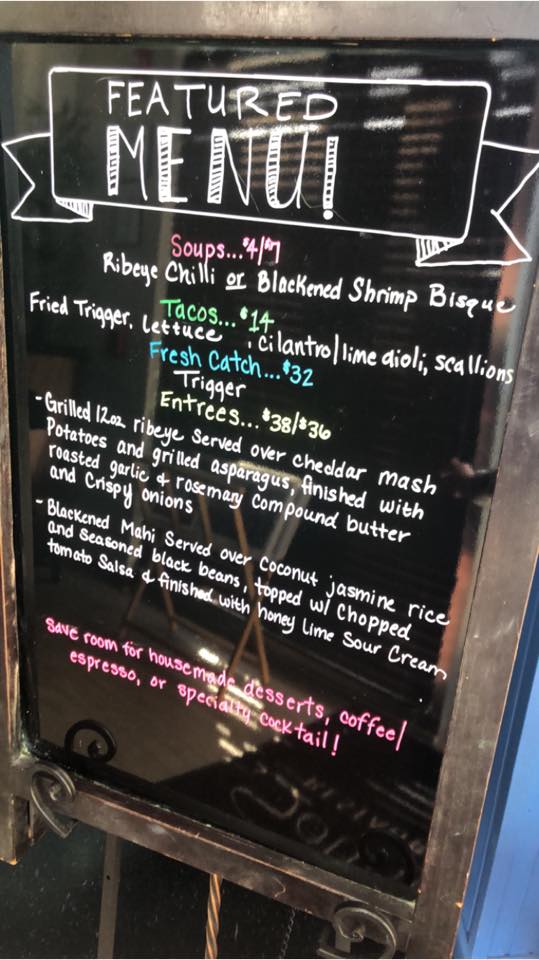 FEATURED
MENU!
Soups...$4/$7
Ribeye Chilli or Blackened Shrimp Bisque
Tacos...$14
Fried Trigger, lettuce, cilantro/lime aioli, scallions
Fresh Catch...$32
Trigger
Entrees...$38/$36
-Grilled 12oz ribeye served over cheddar mash
Potatoes and grilled asparagus, finished with
roasted garlic & rosemary compound butter
and Crispy onions
-Blackened Mahi Served over Coconut jasmine rice
and seasoned black beans, topped w/ Chopped
tomato Salsa & finished with honey lime Sour Cream
Save room for housemade desserts, coffee/
espresso, or specialty cocktail!